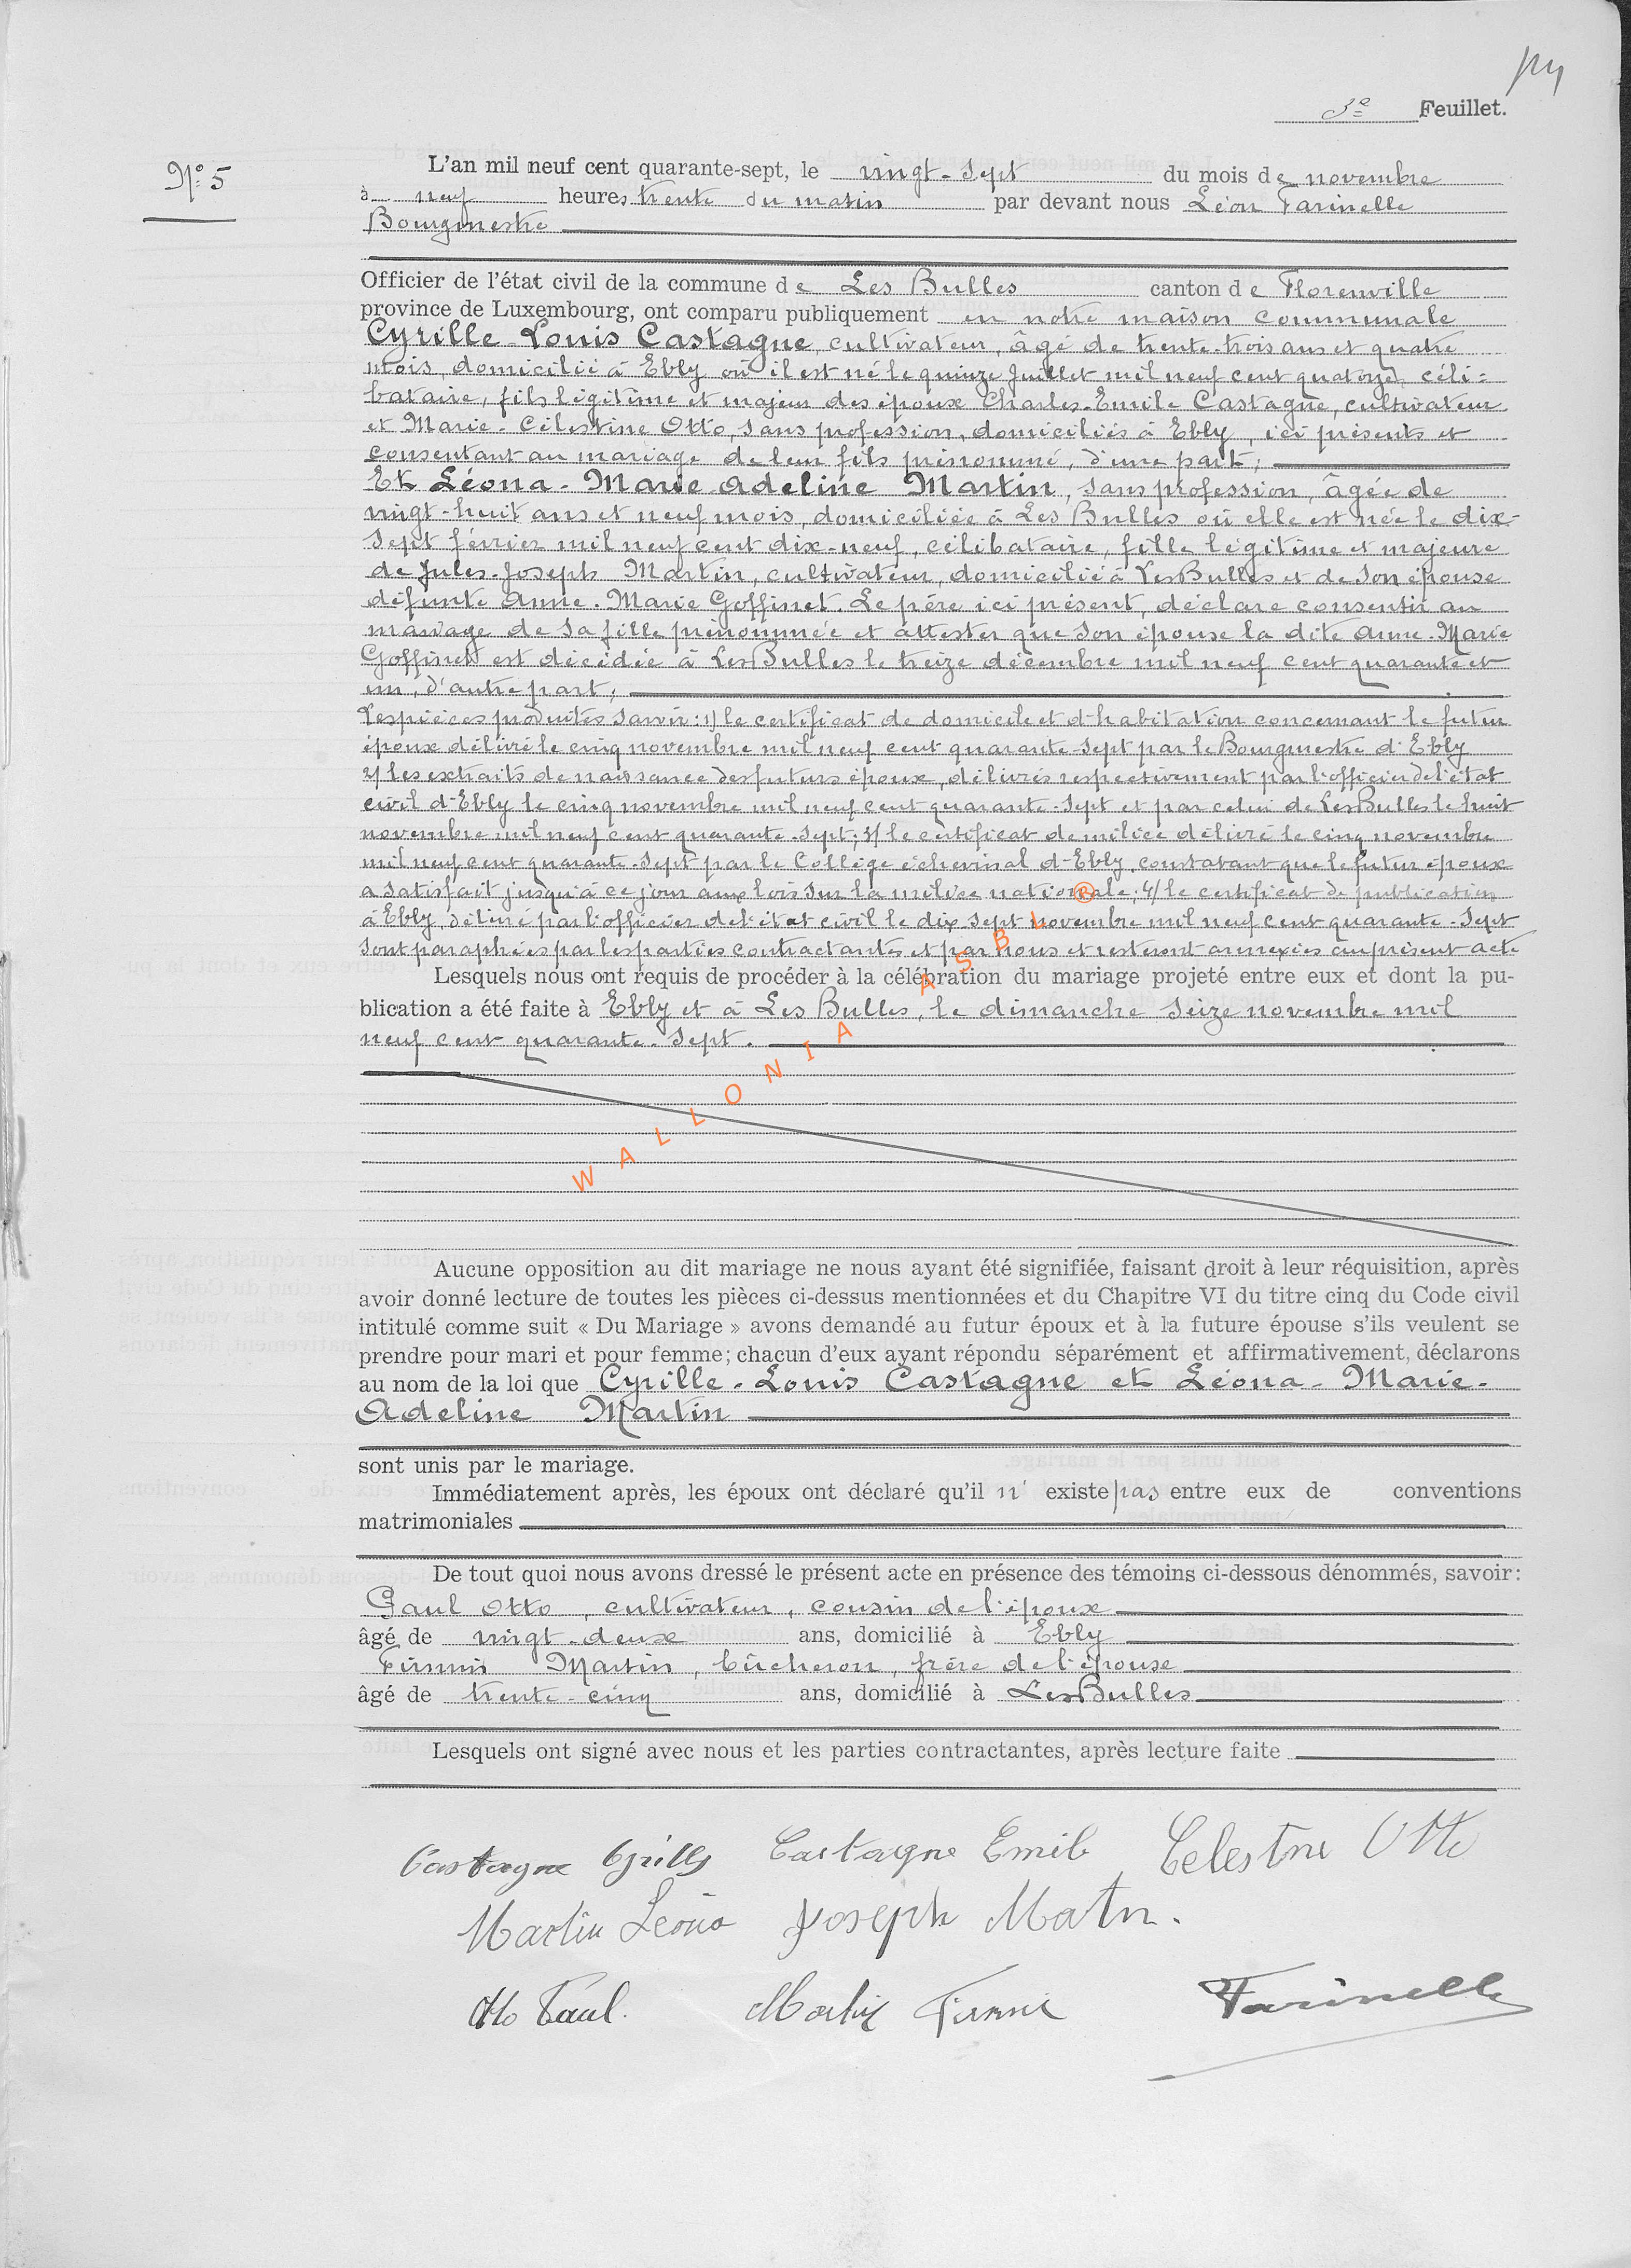 3e Feuillet.
N° 5
L'an mil neuf cent quarante-sept, le vingt-sept du mois de novembre
à neuf heures trente du matin par devant nous Léon Farinelle
Bourgmestre
Officier de l'état civil de la commune de Les Bulles canton de Florenville
province de Luxembourg, ont comparu publiquement en notre maison communale
Cyrille-Louis Castagne, cultivateur, âgé de trente-trois ans et quatre
mois, domicilié à Ebly où il est né le quinze Juillet mil neuf cent quatorze, céli-
bataire, fils légitime et majeur des époux Charles-Emile Castagne, cultivateur
et Marie-Célestine Otto, sans profession, domiciliés à Ebly, ici présents et
consentant au mariage de leur fils prénommé, d'une part;
Et Léona-Marie-Adeline Martin, sans profession, âgée de
vingt-huit ans et neuf mois, domiciliée à Les Bulles où elle est née le dix-
sept février mil neuf cent dix-neuf, célibataire, fille légitime et majeure
de Jules-Joseph Martin, cultivateur, domicilié à Les Bulles et de son épouse
défunte Anne-Marie Goffinet. Le père ici présent, déclare consentir au
mariage de sa fille prénommée et attester que son épouse la dite Anne-Marie
Goffinet est décédée à Les Bulles le treize décembre mil neuf cent quarante et
un, d'autre part;
Les pièces produites savoir: 1) le certificat de domicile et d'habitation concernant le futur
époux délivré le cinq novembre mil neuf cent quarante-sept par le Bourgmestre d'Ebly
2) les extraits de naissance des futurs époux, délivrés respectivement par l'officier de l'état
civil d'Ebly le cinq novembre mil neuf cent quarante-sept et par celui de Les Bulles le huit
novembre mil neuf cent quarante-sept; 3) le certificat de milice délivré le cinq novembre
mil neuf cent quarante-sept par le Collège échevinal d'Ebly, constatant que le futur époux
a satisfait jusqu'à ce jour aux lois sur la milice nationale; 4) le certificat de publication
à Ebly, délivré par l'officier de l'état civil le dix-sept novembre mil neuf cent quarante-sept
sont paraphées par les parties contractantes et par nous et resteront annexées au présent acte
Lesquels nous ont requis de procéder à la célébration du mariage projeté entre eux et dont la pu-
blication a été faite à Ebly et à Les Bulles, le dimanche seize novembre mil
neuf cent quarante-sept.
WALLONIA ASBL ®
Aucune opposition au dit mariage ne nous ayant été signifiée, faisant droit à leur réquisition, après
avoir donné lecture de toutes les pièces ci-dessus mentionnées et du Chapitre VI du titre cinq du Code civil
intitulé comme suit « Du Mariage » avons demandé au futur époux et à la future épouse s'ils veulent se
prendre pour mari et pour femme; chacun d'eux ayant répondu séparément et affirmativement, déclarons
au nom de la loi que Cyrille-Louis Castagne et Léona-Marie-
Adeline Martin
sont unis par le mariage.
Immédiatement après, les époux ont déclaré qu'il n' existe pas entre eux de conventions
matrimoniales
De tout quoi nous avons dressé le présent acte en présence des témoins ci-dessous dénommés, savoir:
Paul Otto, cultivateur, cousin de l'époux
âgé de vingt-deux ans, domicilié à Ebly
Firmin Martin, bûcheron, frère de l'épouse
âgé de trente-cinq ans, domicilié à Les Bulles
Lesquels ont signé avec nous et les parties contractantes, après lecture faite
Castagne Cyrille Castagne Emile Celestine Otto
Martin Léona Joseph Matin.
Otto Paul. Martin Firmin Farinelle